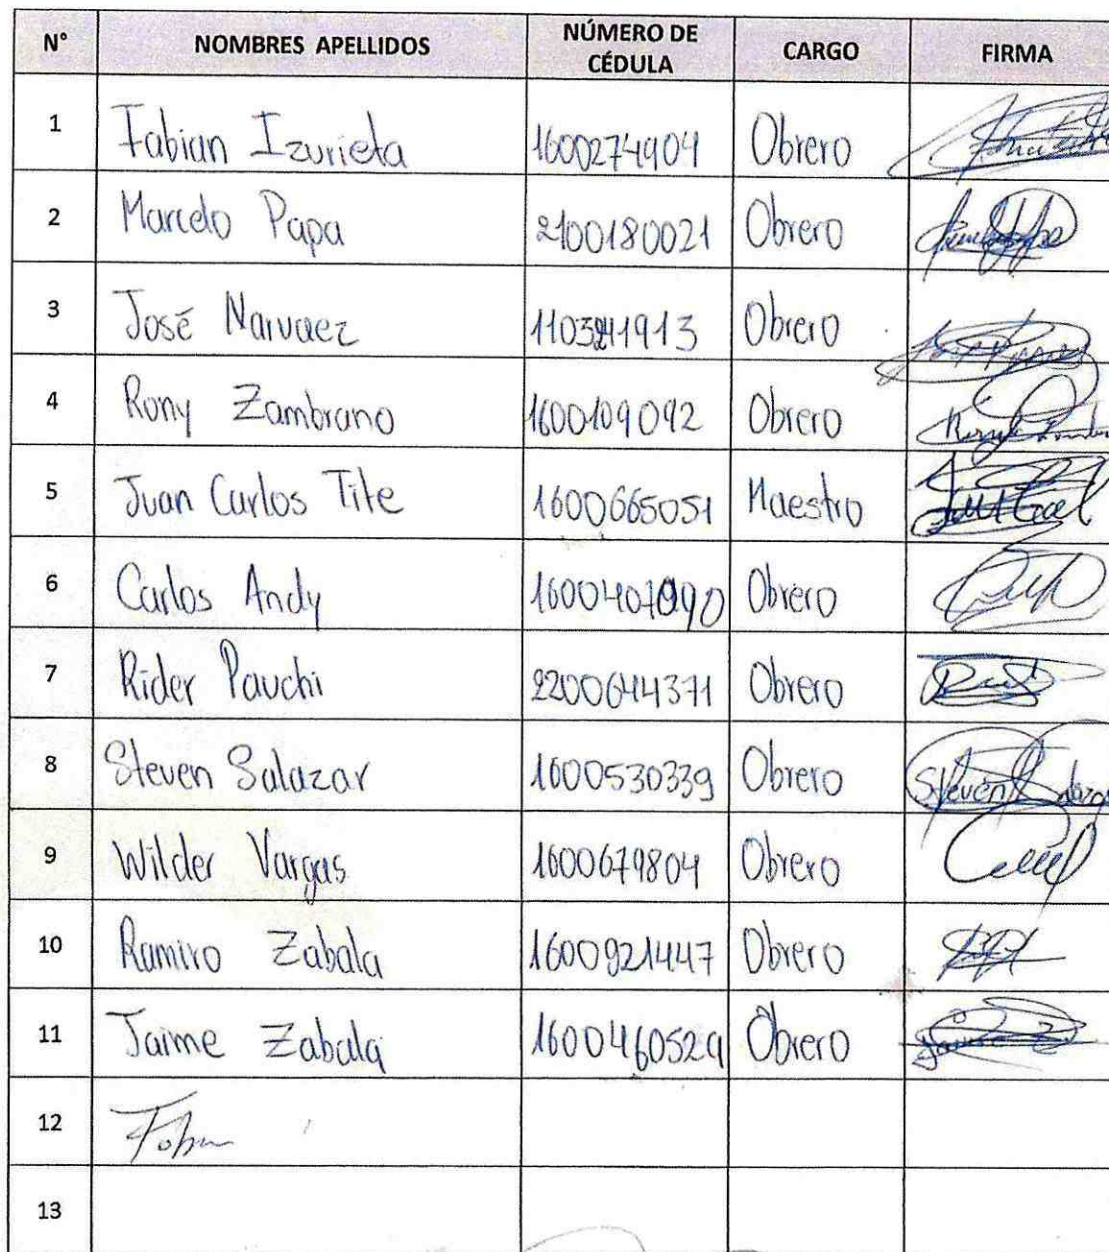 N° NOMBRES APELLIDOS NÚMERO DE CÉDULA CARGO FIRMA
1 Fabian Izurieta 1600274904 Obrero
2 Marcelo Papa 2100180021 Obrero
3 José Narvaez Obrero
4 Rony Zambrano 1600109092 Obrero
5 Juan Carlos Tite 1600665051 Maestro
6 Carlos Andy Obrero
7 Rider Pauchi 2200644371 Obrero
8 Steven Salazar 1600530339 Obrero Steven Salazar
9 Wilder Vargas 1600679804 Obrero
10 Ramiro Zabala 1600921447 Obrero
11 Jaime Zabala 1600460529 Obrero
12
13